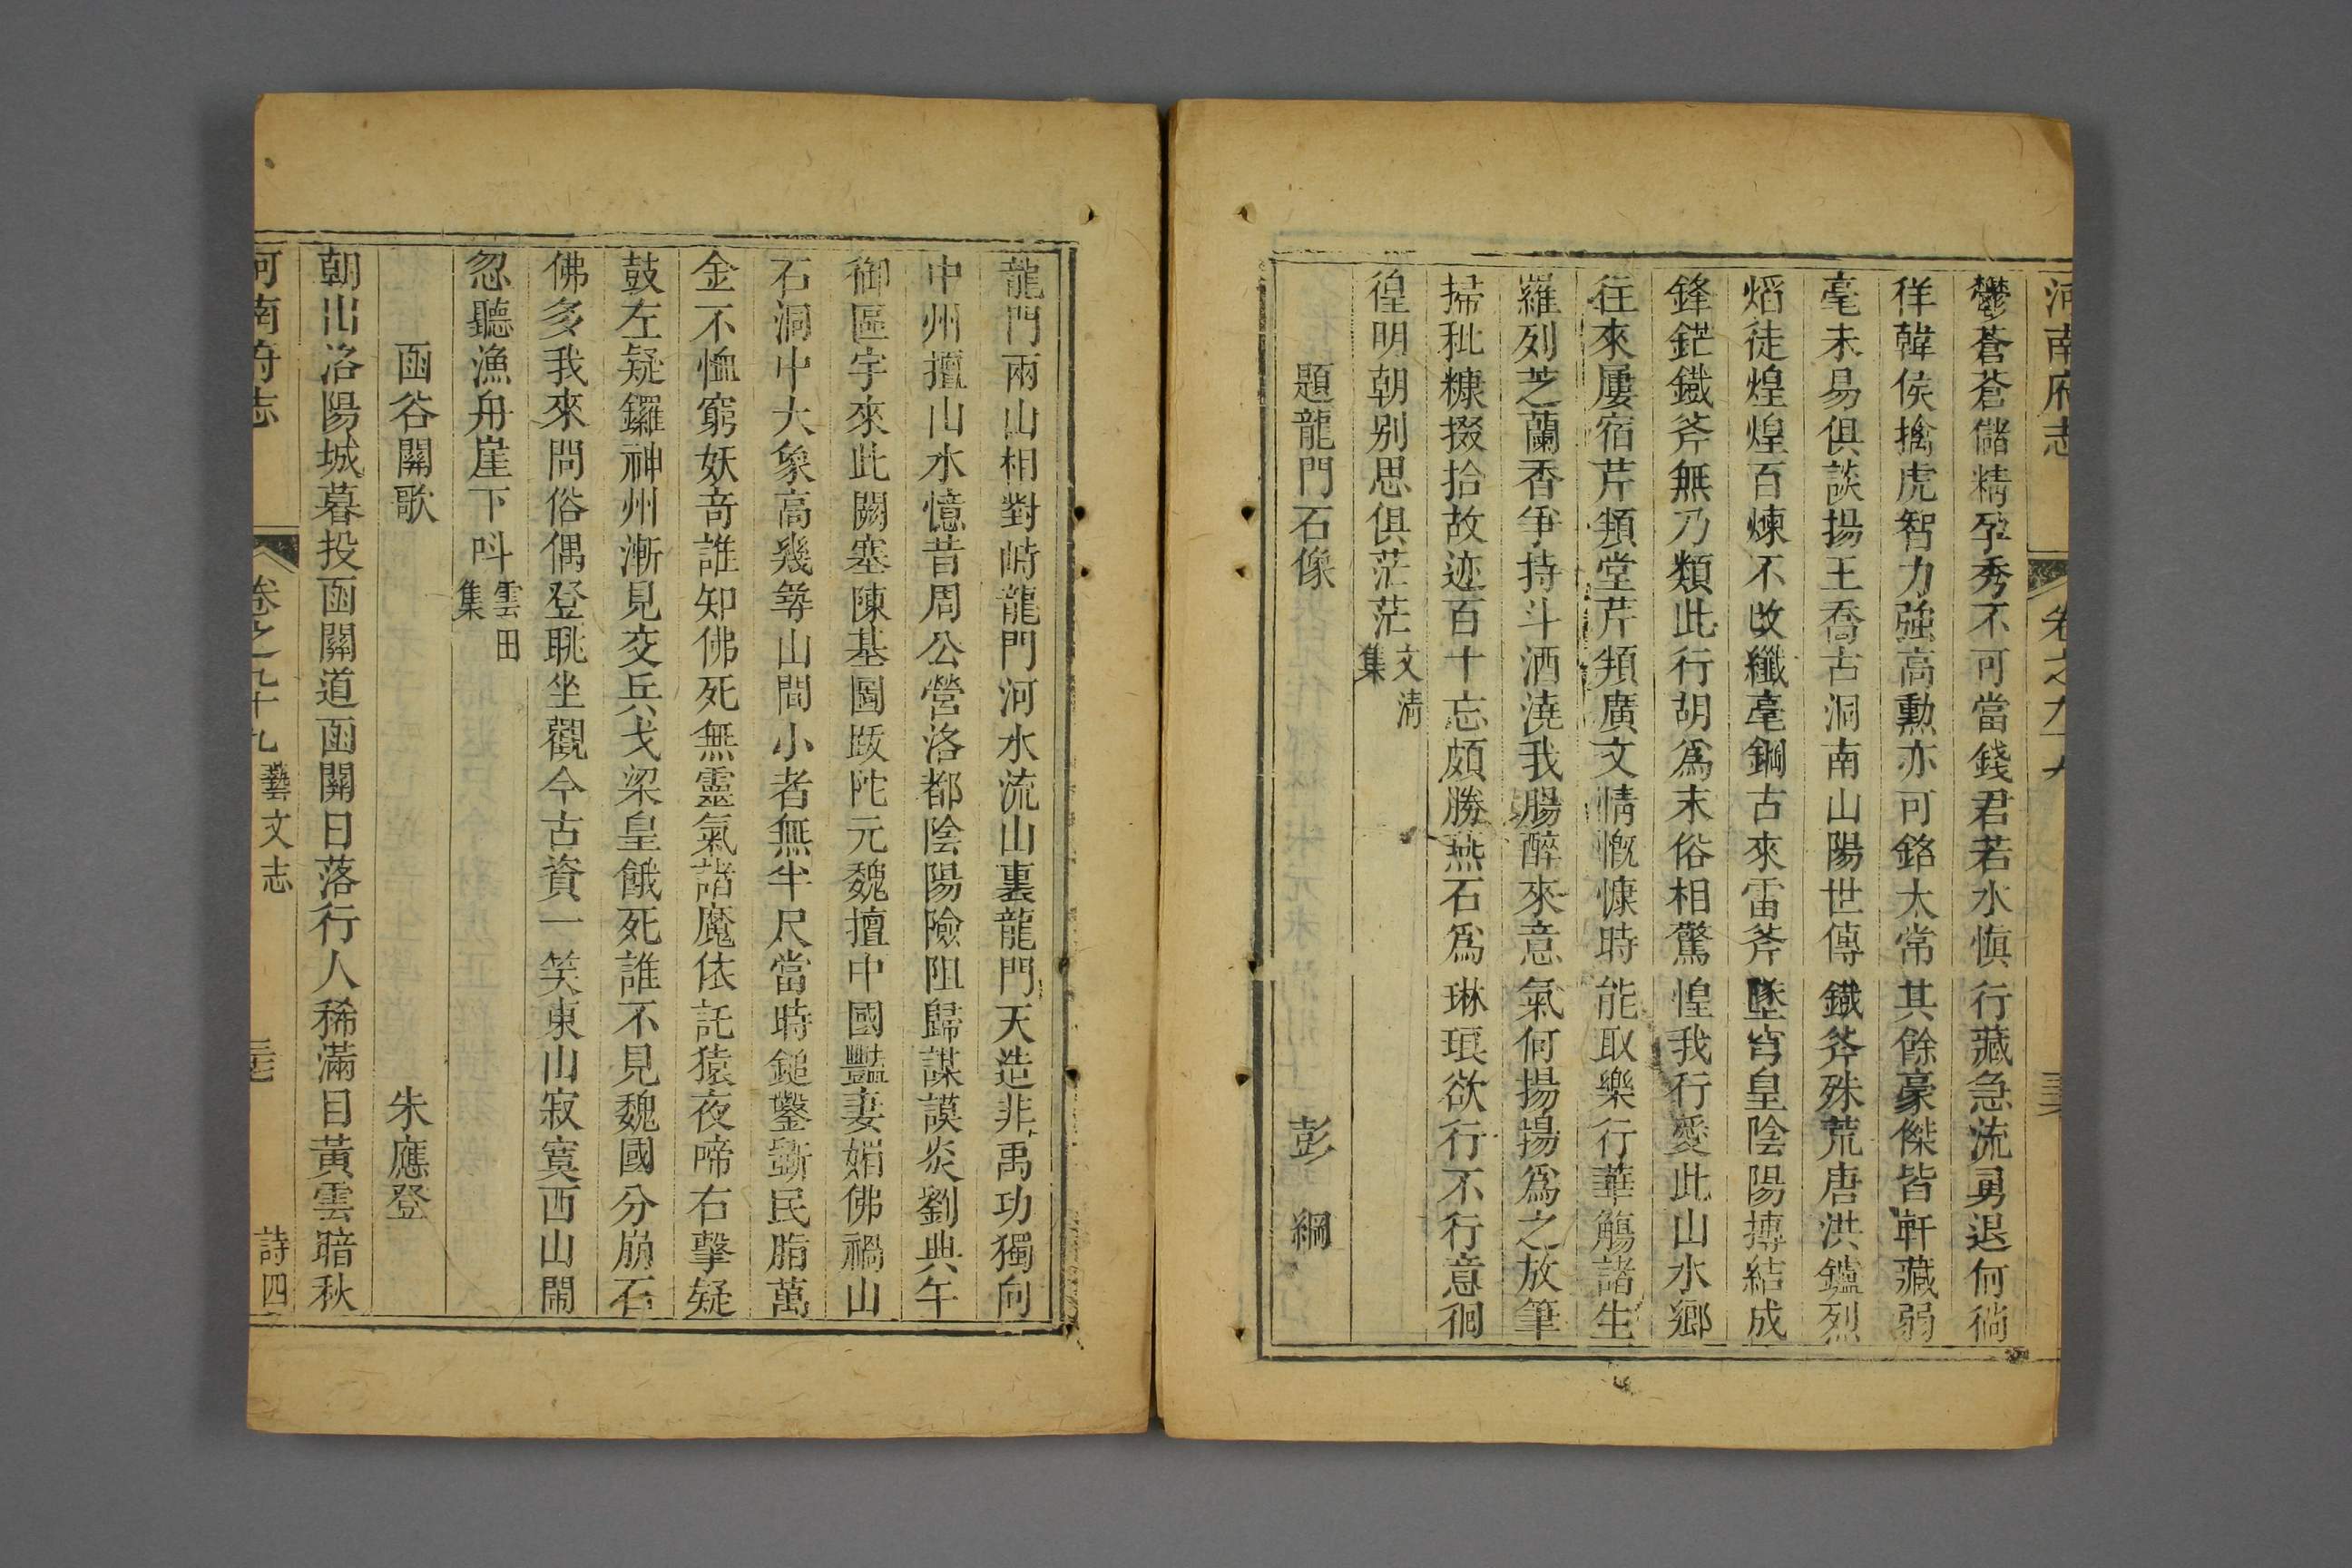 河南府志 卷之九十九
鬱蒼蒼儲精孕秀不可當錢君若水愼行藏急流勇退何徜
徉韓侯擒虎智力強高勳亦可銘太常其餘豪傑皆軒藏弱
毫未易俱談揚王喬古洞南山陽世傳鐵斧殊荒唐洪鑪烈
熖徒煌煌百煉不改纖毫鋼古來雷斧墜穹皇陰陽摶結成
鋒鋩鐵斧無乃類此行胡爲末俗相驚惶我行愛此山水鄉
往來屢宿芹頖堂芹頖廣文情慨慷時能取樂行華觴諸生
羅列芝蘭香爭持斗酒澆我腸醉來意氣何揚揚爲之放筆
掃秕糠掇拾故迹百十忘頗勝燕石爲琳琅欲行不行意徊
徨明朝別思俱茫茫文淸集
題龍門石像 彭綱
龍門兩山相對峙龍門河水流山裏龍門天造非禹功獨向
中州擅山水憶昔周公營洛都陰陽險阻歸謀謨炎劉典午
御區宇來此闕塞陳基圖跋陀元魏擅中國豔妻媚佛禍山
石洞中大象高幾等山間小者無半尺當時鎚鑿斲民脂萬
金不恤窮妖奇誰知佛死無靈氣諸魔依託猿夜啼右擊疑
鼓左疑鑼神州漸見交兵戈梁皇餓死誰不見魏國分崩石
佛多我來問俗偶登眺坐觀今古資一笑東山寂寞西山閙
忽聽漁舟崖下呌雲田集
函谷關歌 朱應登
朝出洛陽城暮投函關道函關日落行人稀滿目黃雲暗秋
河南府志 卷之九十九 藝文志 詩四